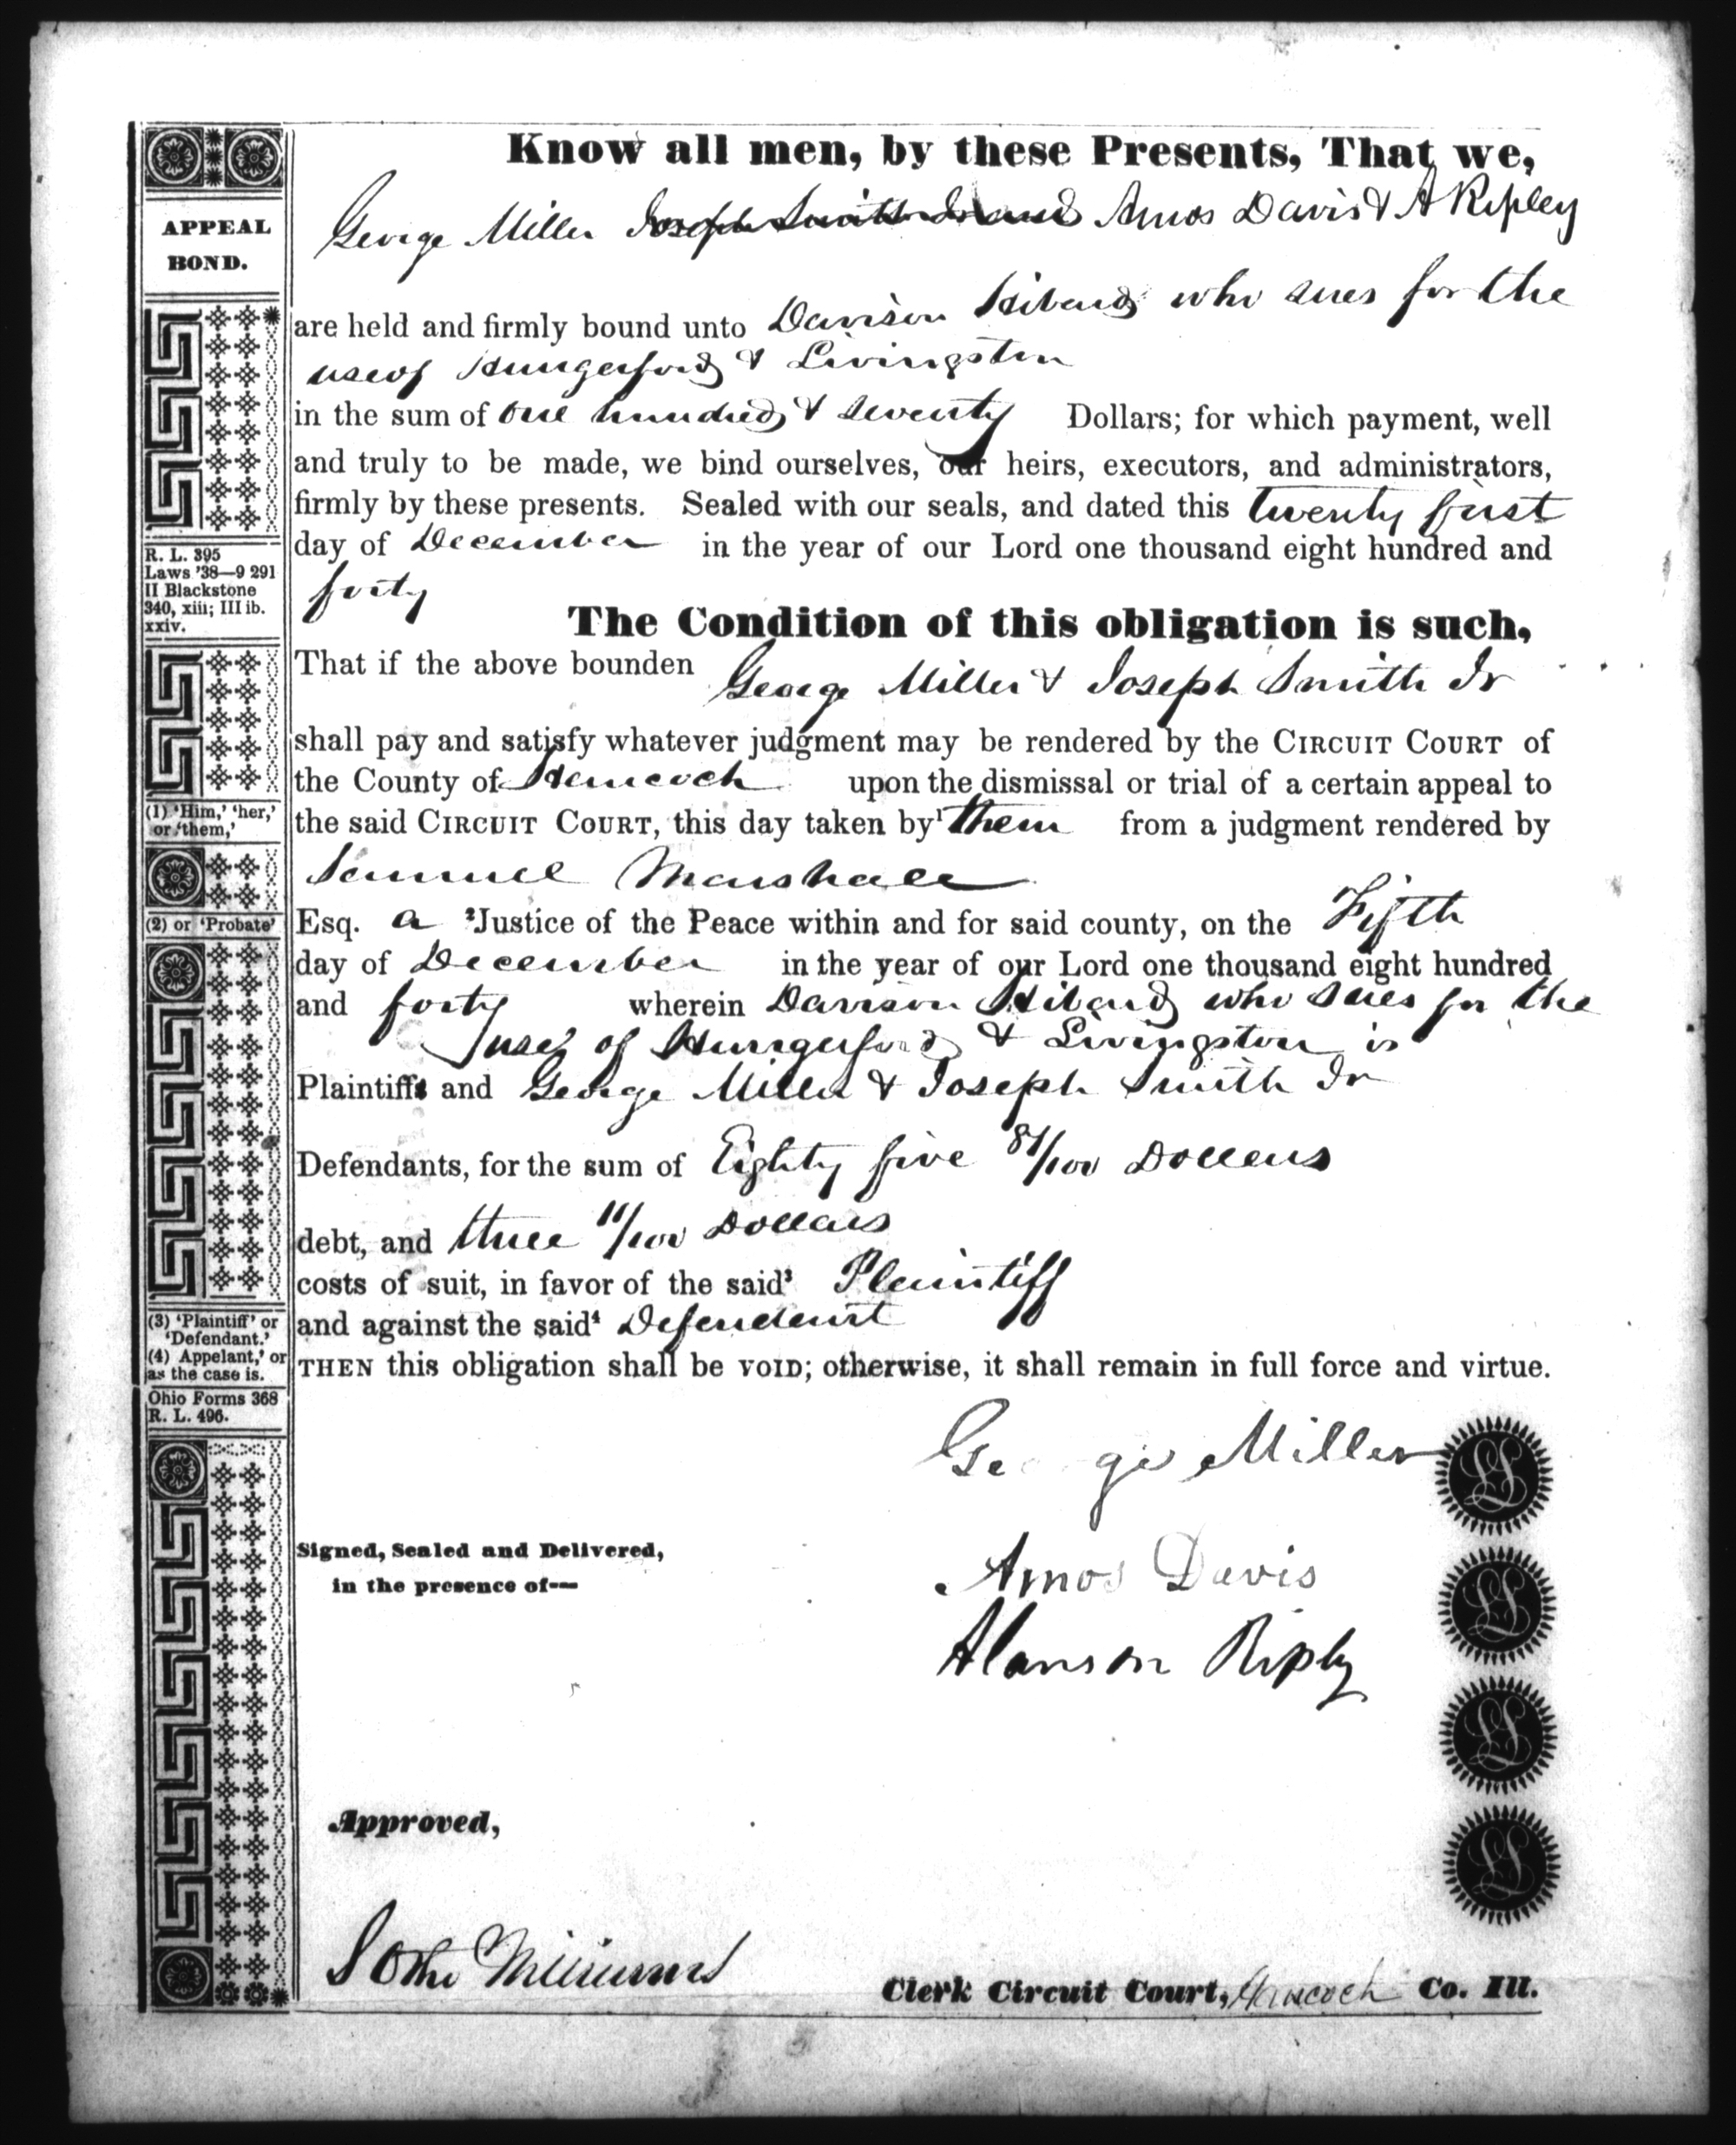 Know all men, by these Presents, That we,
George Miller Joseph Smith Jr and Amos Davis & A Ripley
are held and firmly bound unto Davison Hibard who sues for the
use of Hungerford & Livingston
in the sum of one hundred & seventy Dollars; for which payment, well
and truly to be made, we bind ourselves, our heirs, executors, and administrators,
firmly by these presents. Sealed with our seals, and dated this twenty first
day of December in the year of our Lord one thousand eight hundred and
forty
The Condition of this obligation is such,
That if the above bounden George Miller & Joseph Smith Jr
shall pay and satisfy whatever judgment may be rendered by the CIRCUIT COURT of
the County of Hancock upon the dismissal or trial of a certain appeal to
the said CIRCUIT COURT, this day taken by¹ them from a judgment rendered by
Samuel Marshall
Esq. a ²Justice of the Peace within and for said county, on the Fifth
day of December in the year of our Lord one thousand eight hundred
and forty wherein Davison Hibard who sues for the
use of Hungerford & Livingston is
Plaintiffs and George Miller & Joseph Smith Jr
Defendants, for the sum of Eighty five 81/100 Dollars
debt, and three 11/100 Dollars
costs of suit, in favor of the said³ Plaintiff
and against the said⁴ Defendant
THEN this obligation shall be VOID; otherwise, it shall remain in full force and virtue.
George Miller
Signed, Sealed and Delivered,
in the presence of---
Amos Davis
Alanson Ripley
Approved,
Williams
Clerk Circuit Court, Hancock Co. Ill.
APPEAL
BOND.
R. L. 395
Laws '38—9 291
II Blackstone
340, xiii; III ib.
xxiv.
(1) 'Him,' 'her,'
or 'them,'
(2) or 'Probate'
(3) 'Plaintiff' or
'Defendant.'
(4) Appelant,' or
as the case is.
Ohio Forms 368
R. L. 496.
LS
LS
LS
LS